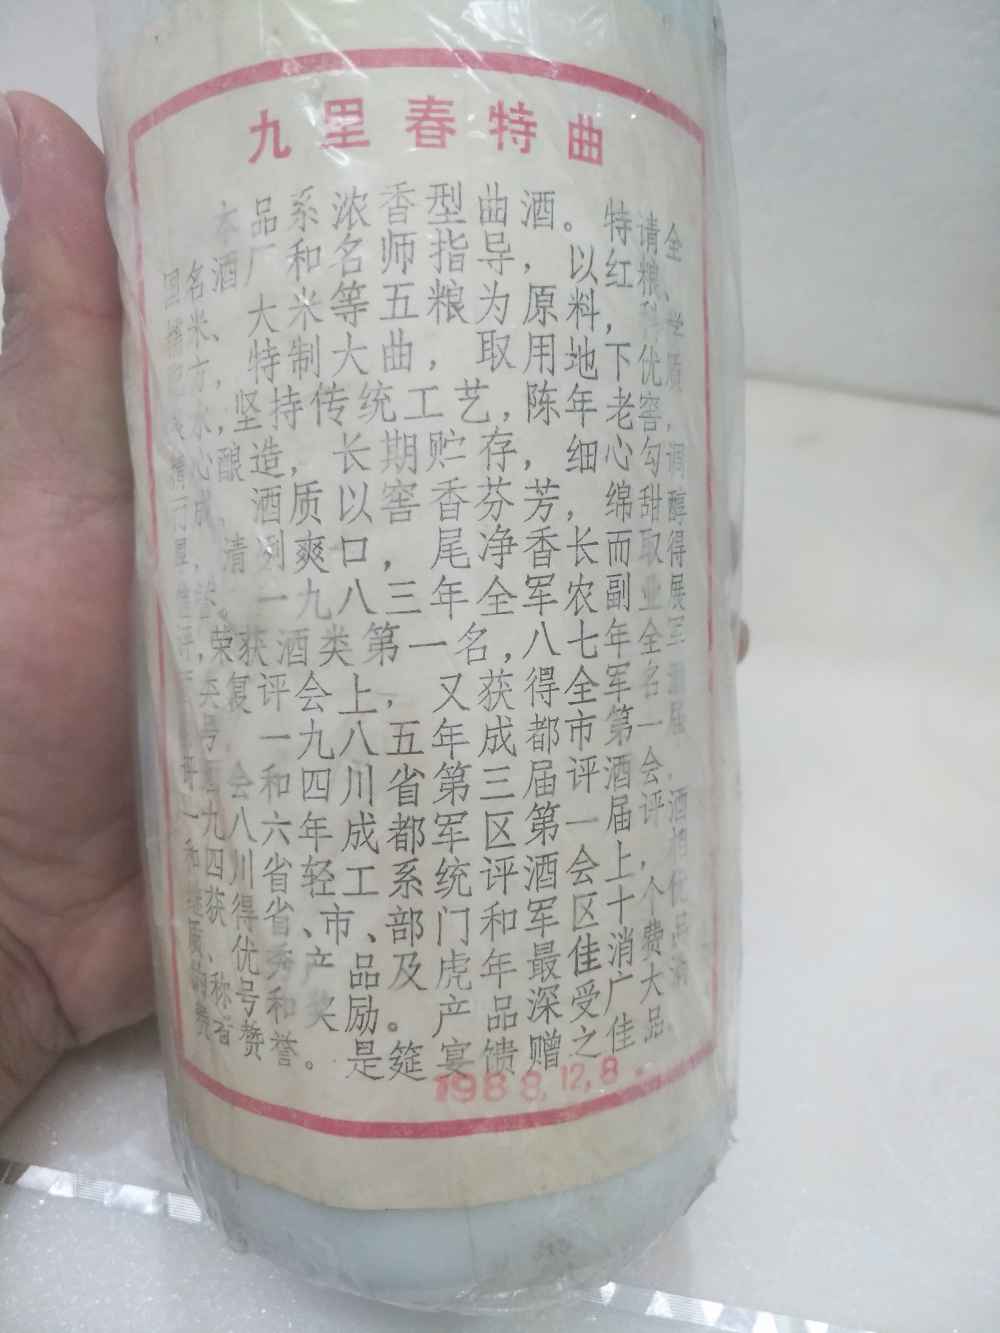 九里春特曲
本品系浓香型曲酒。特请全
国名酒厂和名师指导，以红粮、
糯米、大米等五粮为原料，科学
配方，特制大曲，取用地下优质
水，坚持传统工艺，陈年老窖，
精心酿造，长期贮存，细心勾调
成，酒质以窖香芬芳，绵甜醇
清冽爽口，尾净香长而取得
誉。一九八三年全军农副业展
评，荣获酒类第一名，八七年全军
复评会上，又获得全军名酒
号。一九八五年成都市第一届
评酒会和四川省第三届评酒会，
一九八六年成都军区第一届评酒
和四川省轻工系统评酒会上，相
继获得省、市、部门和军区十个优
质、优秀产品及虎年最佳消费品
的称号和奖励。产品深受广大消
费者赞誉。是筵宴馈赠之佳品。
1988.12.8.